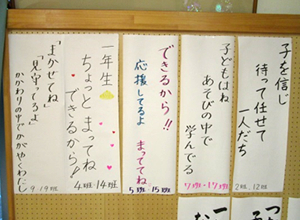 子を信じ
待って任せて
一人だち
2班、12班
子どもはね
あそびの中で
学んでる
7班・17班
できるから!!
応援してるよ
まっててね
5班 15班
一年生
ちょっとまってね
できるから!
4班・14班
「まかせてね」
「見守ってるよ」
かかわりの中でかがやくわたし
9・19班